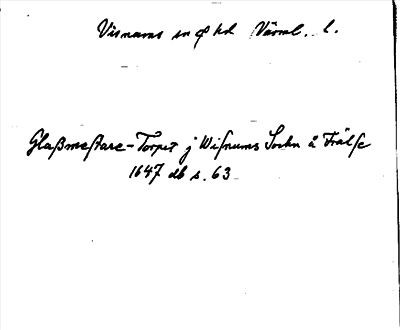 Visnums sn Ø hd Värml. l.
Glaßmeßtare-Torpet j Wisnums Sockn å Frälse
1647 db s. 63